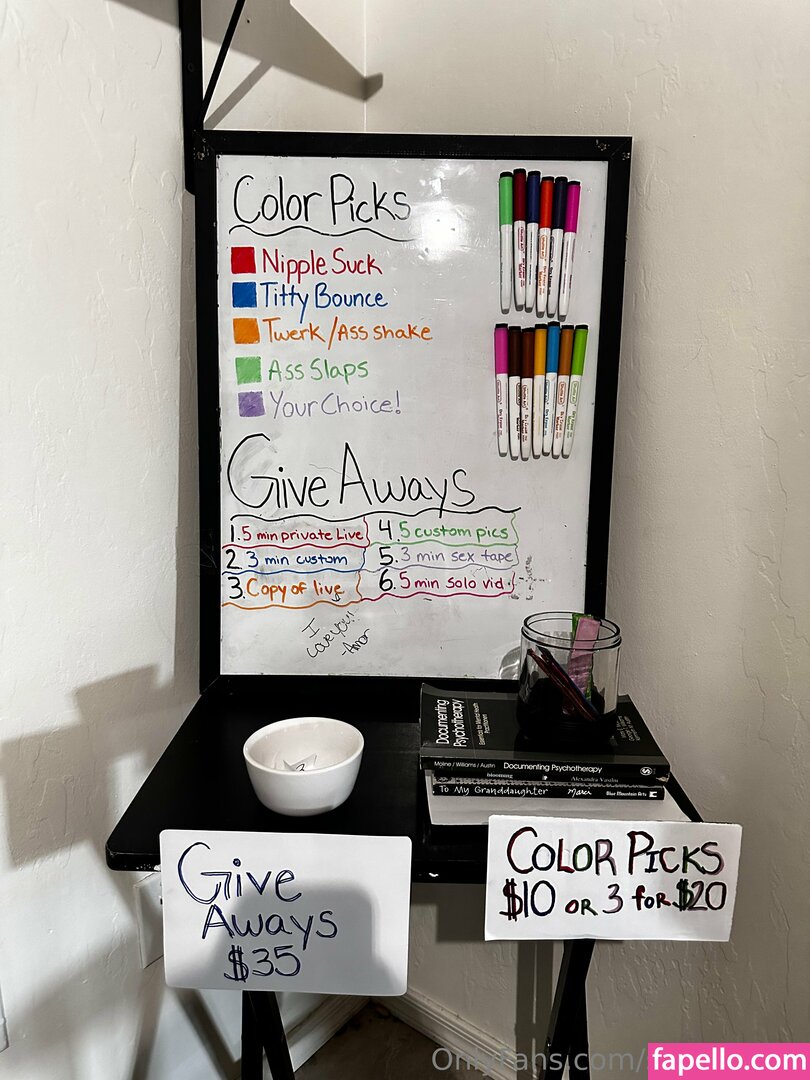 Color Picks
Nipple Suck
Titty Bounce
Twerk/Ass shake
Ass Slaps
Your Choice!
Give Aways
1. 5 min private Live
2. 3 min custom
3. Copy of live
4. 5 custom pics
5. 3 min sex tape
6. 5 min solo vid.
I
Love you!!
Documenting
Psychotherapy
Moline / Williams / Austin Documenting Psychotherapy
blooming Alexandra Vasiliu
To My Granddaughter Blue Mountain Arts
Give
Aways
$35
COLOR PICKS
$10 OR 3 for $20
OnlyFans.com/
fapello.com